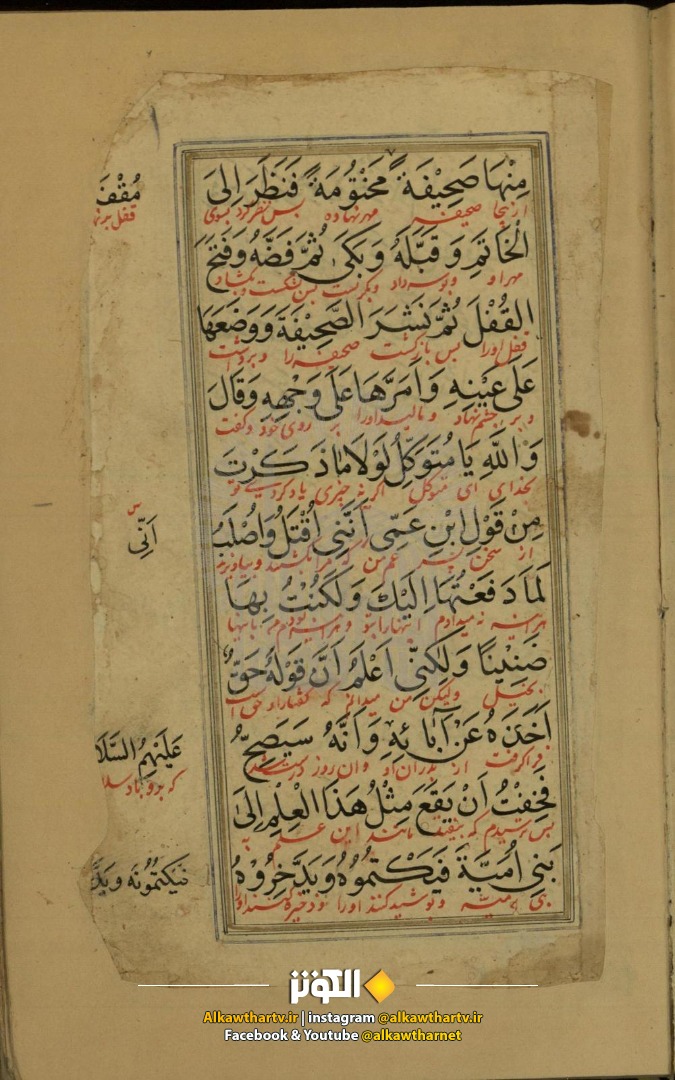 مِنْهَا صَحِيْفَةً مَخْتُوْمَةً فَنَظَرَ اِلَى
از آنجا صحیفه مهر نهاده پس نظر کرد بسوی
مُقْفَ
الْخَاتَمِ وَقَبَّلَهُ وَبَكَى ثُمَّ فَضَّهُ وَفَتَحَ
مهر او و بوسه داد و بگریست پس شکست و بگشاد
الْقُفْلَ ثُمَّ نَشَرَ الصَّحِيْفَةَ وَوَضَعَهَا
قفل اورا پس باز گشت صحیفه را و برداشت
عَلَى عَيْنِهِ وَاَمَرَّهَا عَلَى وَجْهِهِ وَقَالَ
و بر چشم نهاد و مالید اورا بر روی خود و گفت
وَاللَّهِ يَا مُتَوَكِّلُ لَوْلَا مَا ذَكَرْتَ
بخدای ای متوکل اگر نه چیزی یاد کردی تو
مِنْ قَوْلِ ابْنِ عَمِّى اَنَّنِى اُقْتَلُ وَاُصْلَبُ
از سخن پسر عم من که مرا بکشند
اَنِّى
لَمَا دَفَعْتُهَا اِلَيْكَ وَلَكُنْتُ بِهَا
هر اینه نه میدادم اینها را بتو
ضَنِيْنًا وَلَكِنِّى اَعْلَمُ اَنَّ قَوْلَهُ حَقٌّ
بخیل ولیکن من میدانم که گفتار او حق است
اَخَذَهُ عَنْ آبَائِهِ وَاَنَّهُ سَيَصِحُّ
فرا گرفت از پدران او
عَلَيْهِمُ السَّلَا
که برو باد سلا
فَخِفْتُ اَنْ يَقَعَ مِثْلُ هَذَا الْعِلْمِ اِلَى
پس ترسیدم که بیفتد مانند این علم به
بَنِى اُمَيَّةَ فَيَكْتُمُوْهُ وَيَدَّخِرُوْهُ
بنی امیّه و بپوشید کنند اورا
فَيَكْتُمُونَه وَيَدَّ
الكوثر
Alkawthartv.ir | instagram @alkawthartv.ir
Facebook & Youtube @alkawtharnet